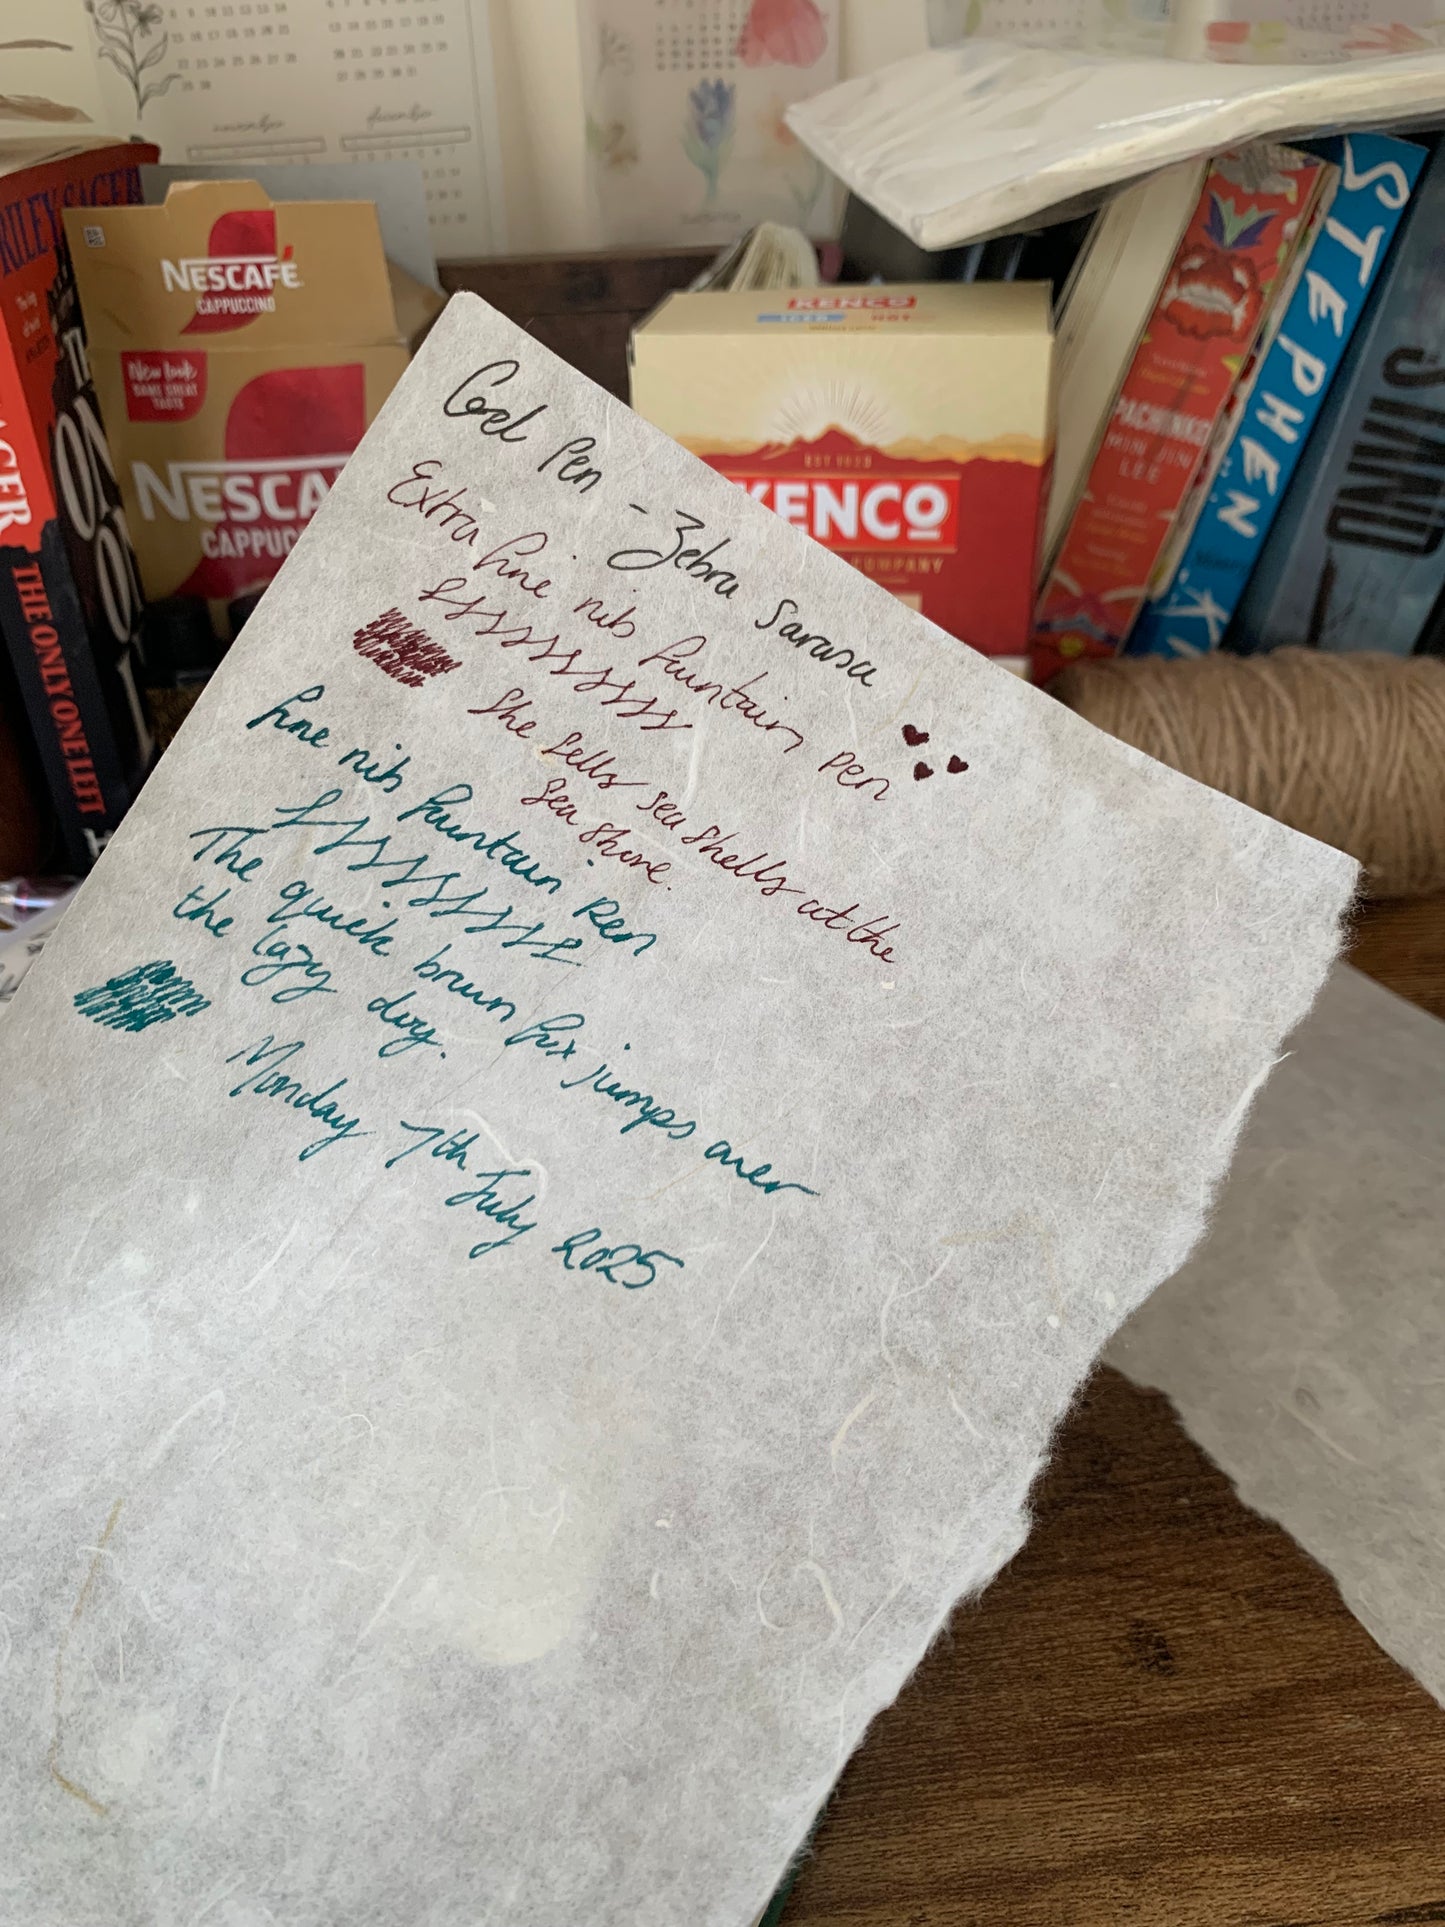 Gel Pen - Zebra Sarasa
Extra fine nib fountain pen
She sells sea shells at the
sea shore.
fine nib fountain pen
The quick brown fox jumps over
the lazy dog.
Monday 7th July 2025
november
december
RILEY SAGER
THE ONLY ONE LEFT
NESCAFÉ
CAPPUCCINO
New look
SAME GREAT
TASTE
NESCA
CAPPUC
KENCO
ICED
HOT
EST 1923
KENCO
COMPANY
PACHINKO
MIN JIN
LEE
STEPHEN